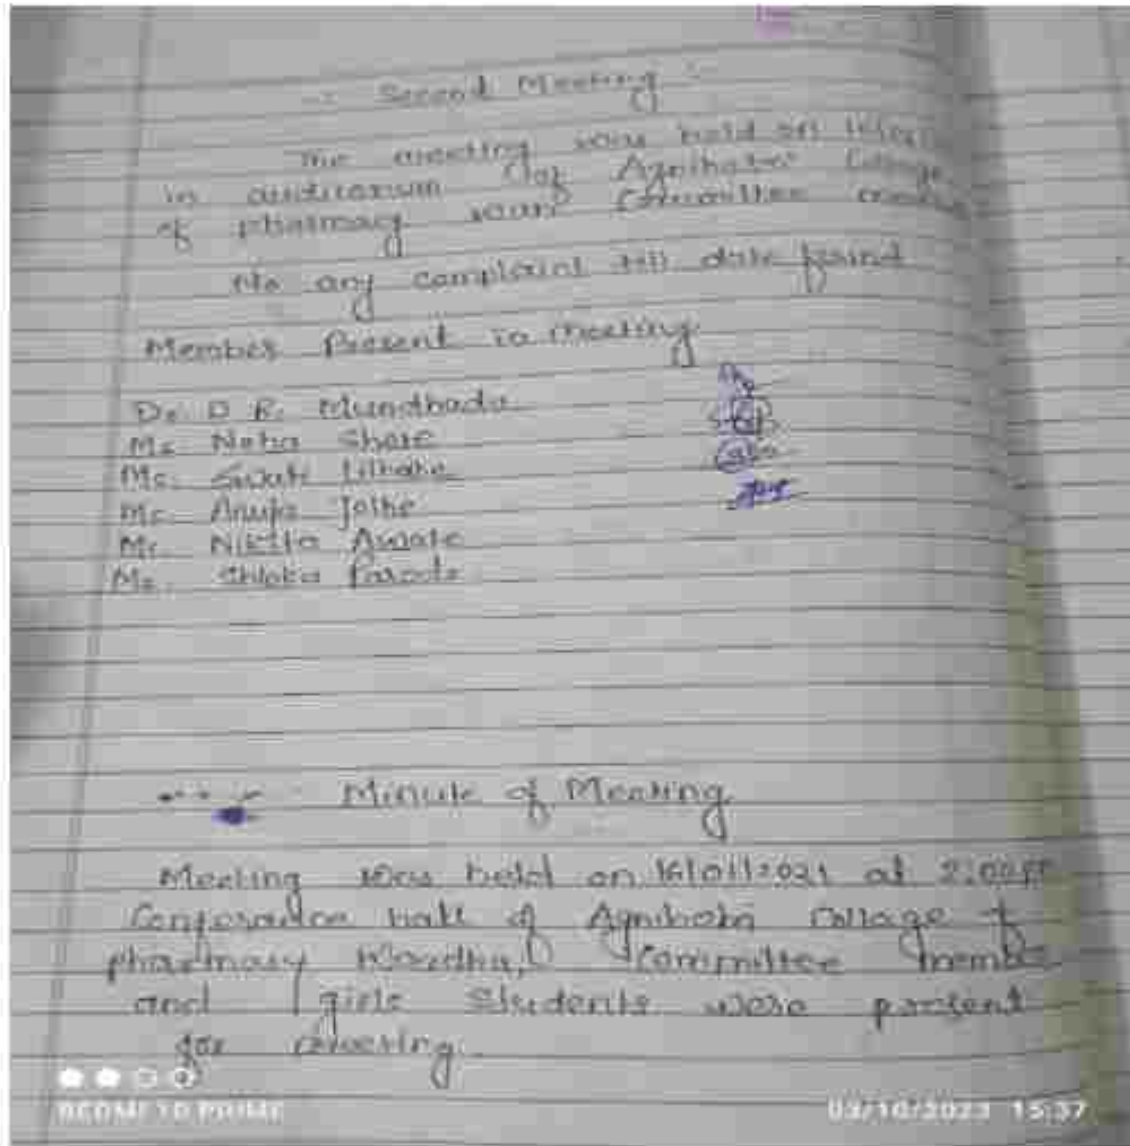 Second Meeting
The meeting was held on
in auditorium of Agnihotri College
of pharmacy with Committee
No any complaint till date found
Member Present in meeting
Dr. D. R. Mundhada
Ms. Neha
Ms. Swati
Ms. Anuja
Ms. Nikita Awate
Ms.
Minute of Meeting
Meeting was held on 16/01/2021 at 2:00
Conferance hall of Agnihotri College of
pharmacy Wardha, Committee membe
and girls Students were present
for meeting.
REDMI 10 PRIME
03/10/2023 15:37